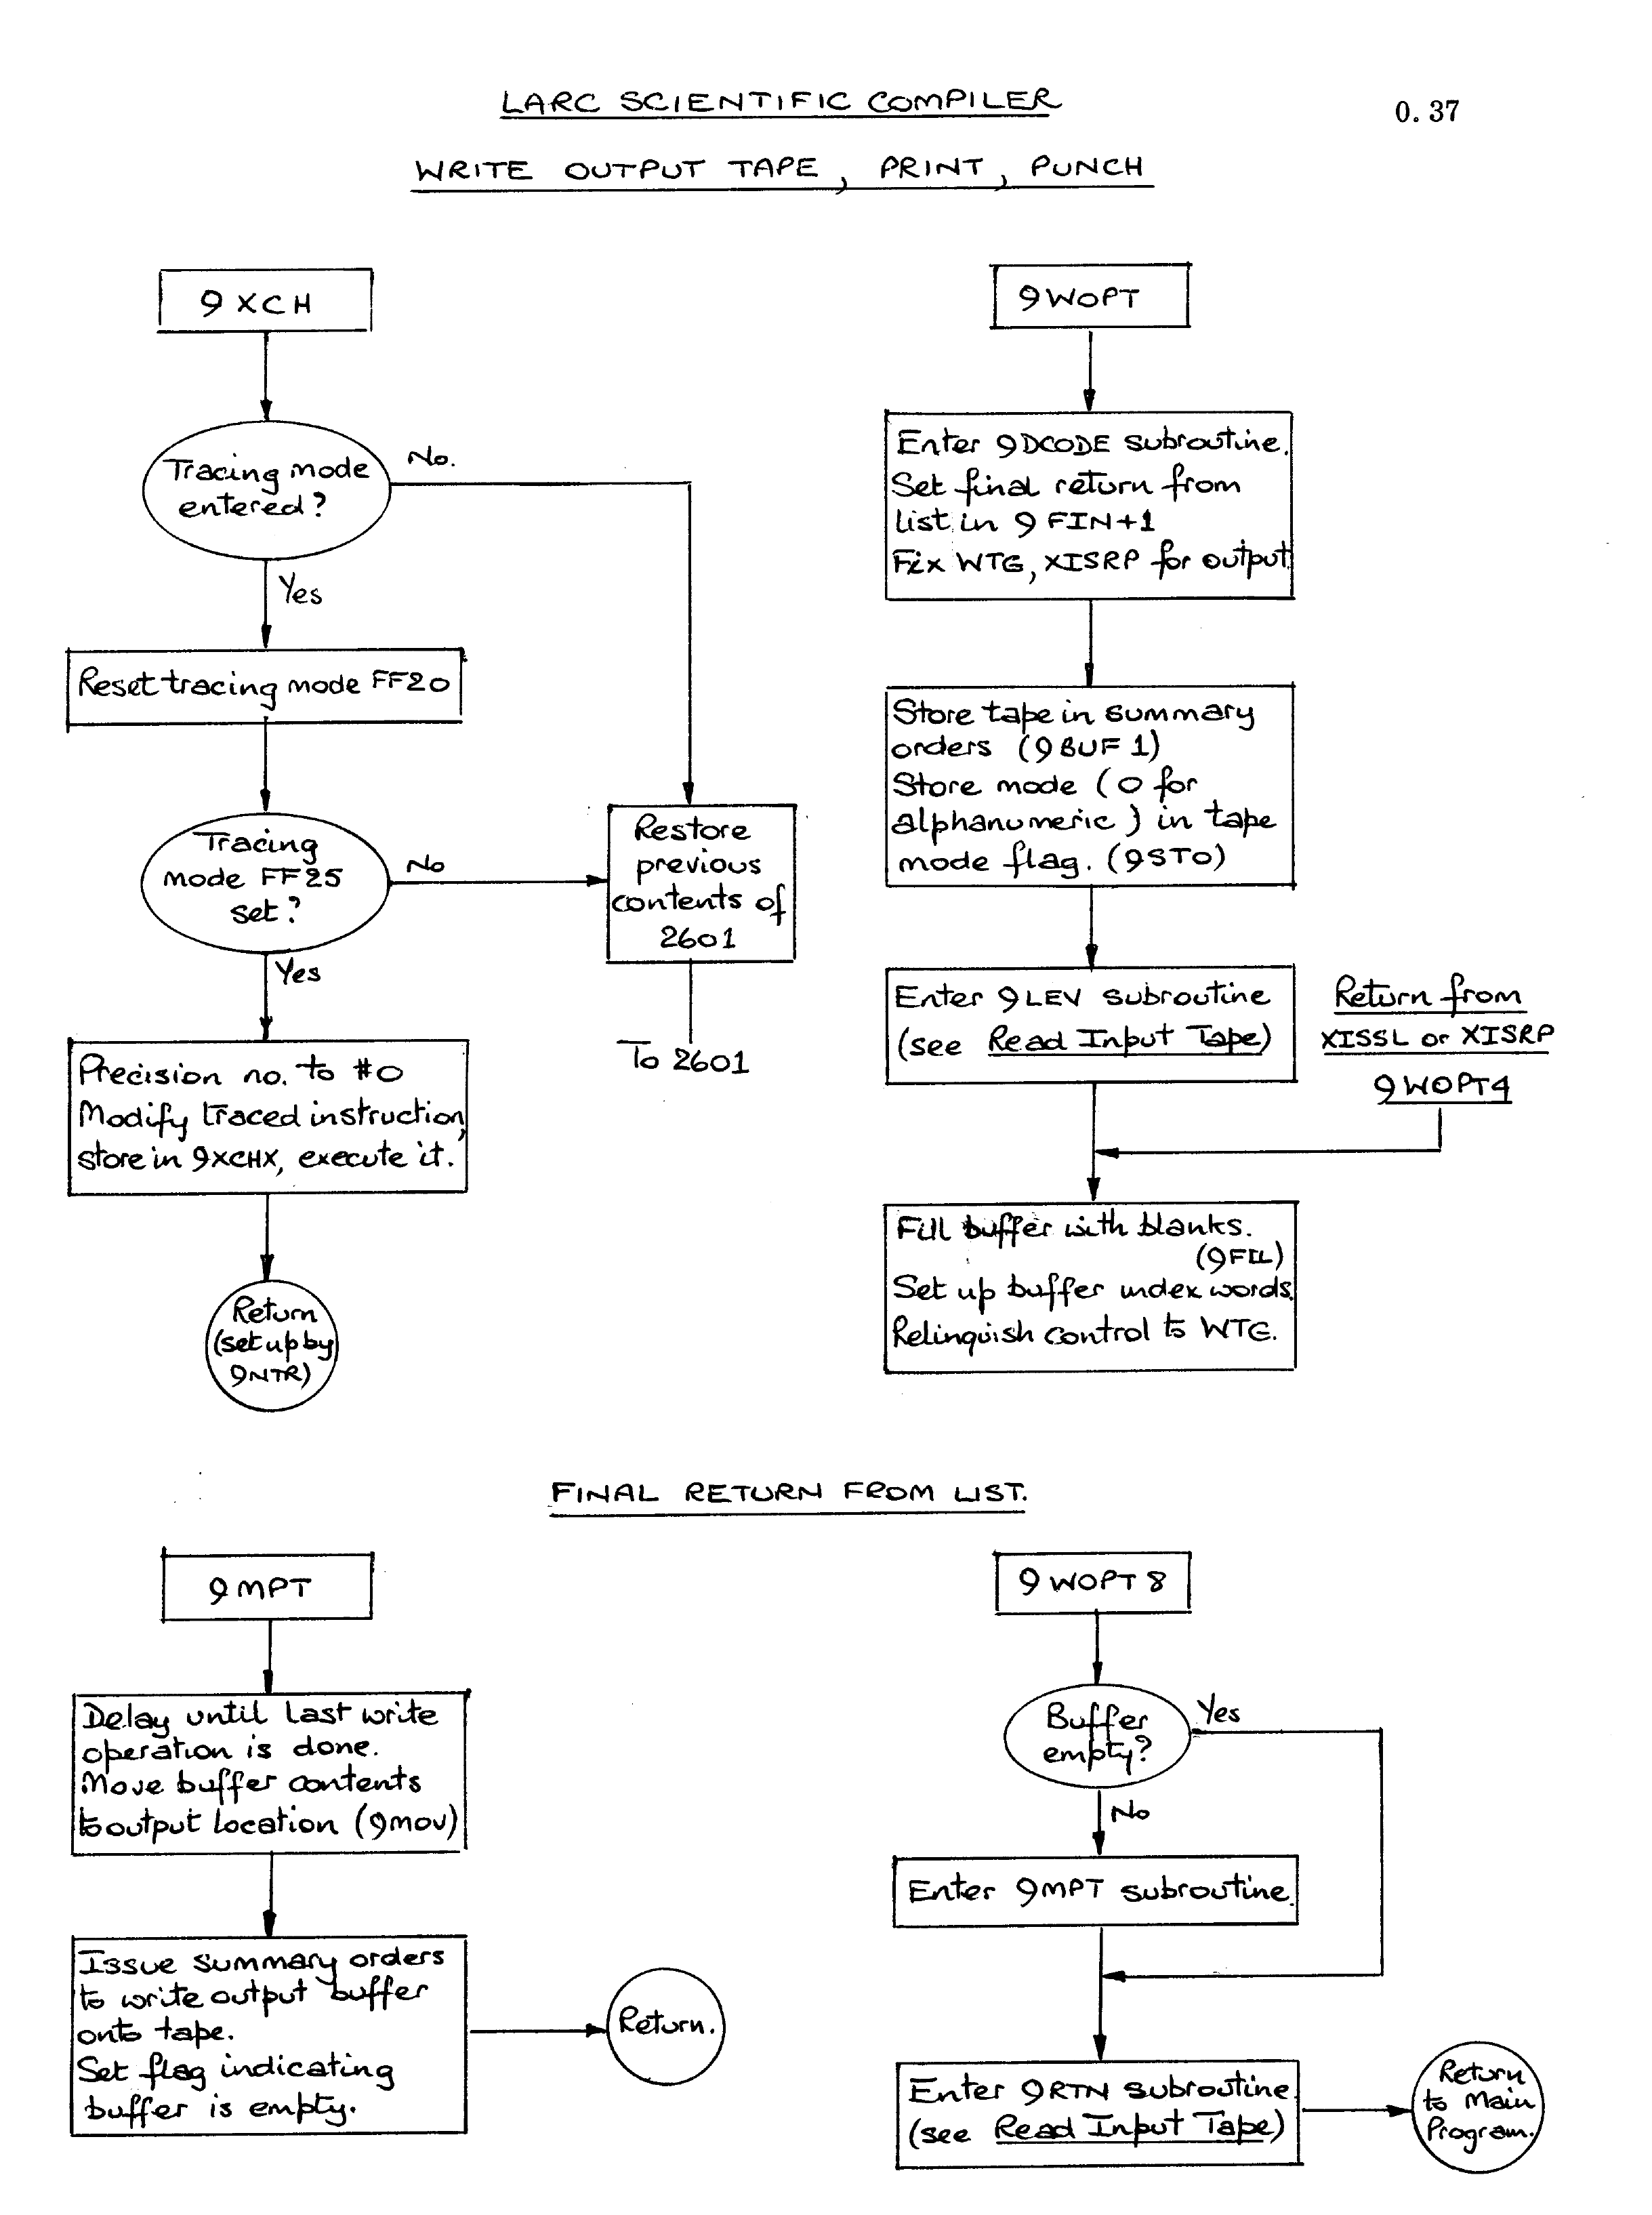 LARC SCIENTIFIC COMPILER
0.37
WRITE OUTPUT TAPE, PRINT, PUNCH
9XCH
Tracing mode
entered?
No.
Yes
Reset tracing mode FF20
Tracing
mode FF25
set?
No
Yes
Restore
previous
contents of
2601
To 2601
Precision no. to #0
Modify traced instruction,
store in 9XCHX, execute it.
Return
(set up by
9NTR)
9WOPT
Enter 9DCODE subroutine.
Set final return from
list in 9FIN+1
Fix WTG, XISRP for output
Store tape in summary
orders (9BUF1)
Store mode (0 for
alphanumeric) in tape
mode flag. (9STO)
Enter 9LEV subroutine
(see Read Input Tape)
Return from
XISSL or XISRP
9WOPT4
Fill buffer with blanks.
(9FIL)
Set up buffer index words.
Relinquish control to WTG.
FINAL RETURN FROM LIST.
9MPT
Delay until last write
operation is done.
Move buffer contents
to output location (9MOV)
Issue summary orders
to write output buffer
onto tape.
Set flag indicating
buffer is empty.
Return.
9WOPT8
Buffer
empty?
Yes
No
Enter 9MPT subroutine.
Enter 9RTN subroutine.
(see Read Input Tape)
Return
to Main
Program.